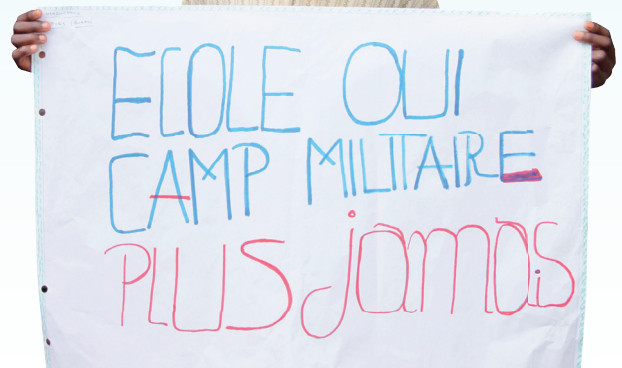 ECOLE OUI
CAMP MILITAIRE
PLUS jamais